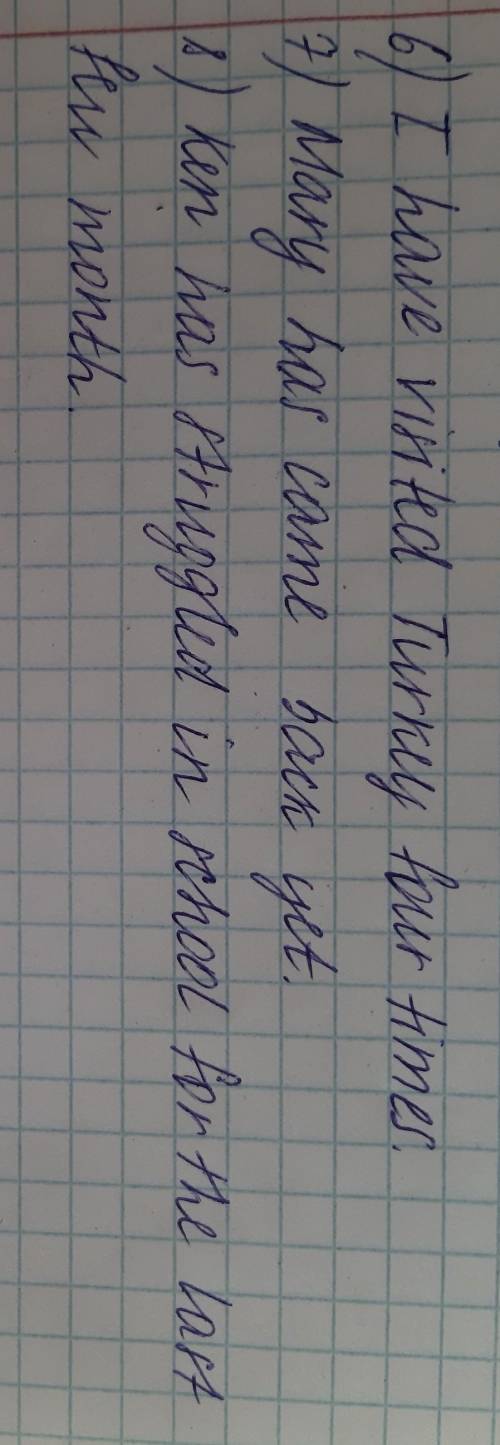 6) I have visited Turkey four times.
7) Mary has came back yet.
8) Ken has struggled in school for the last
few month.